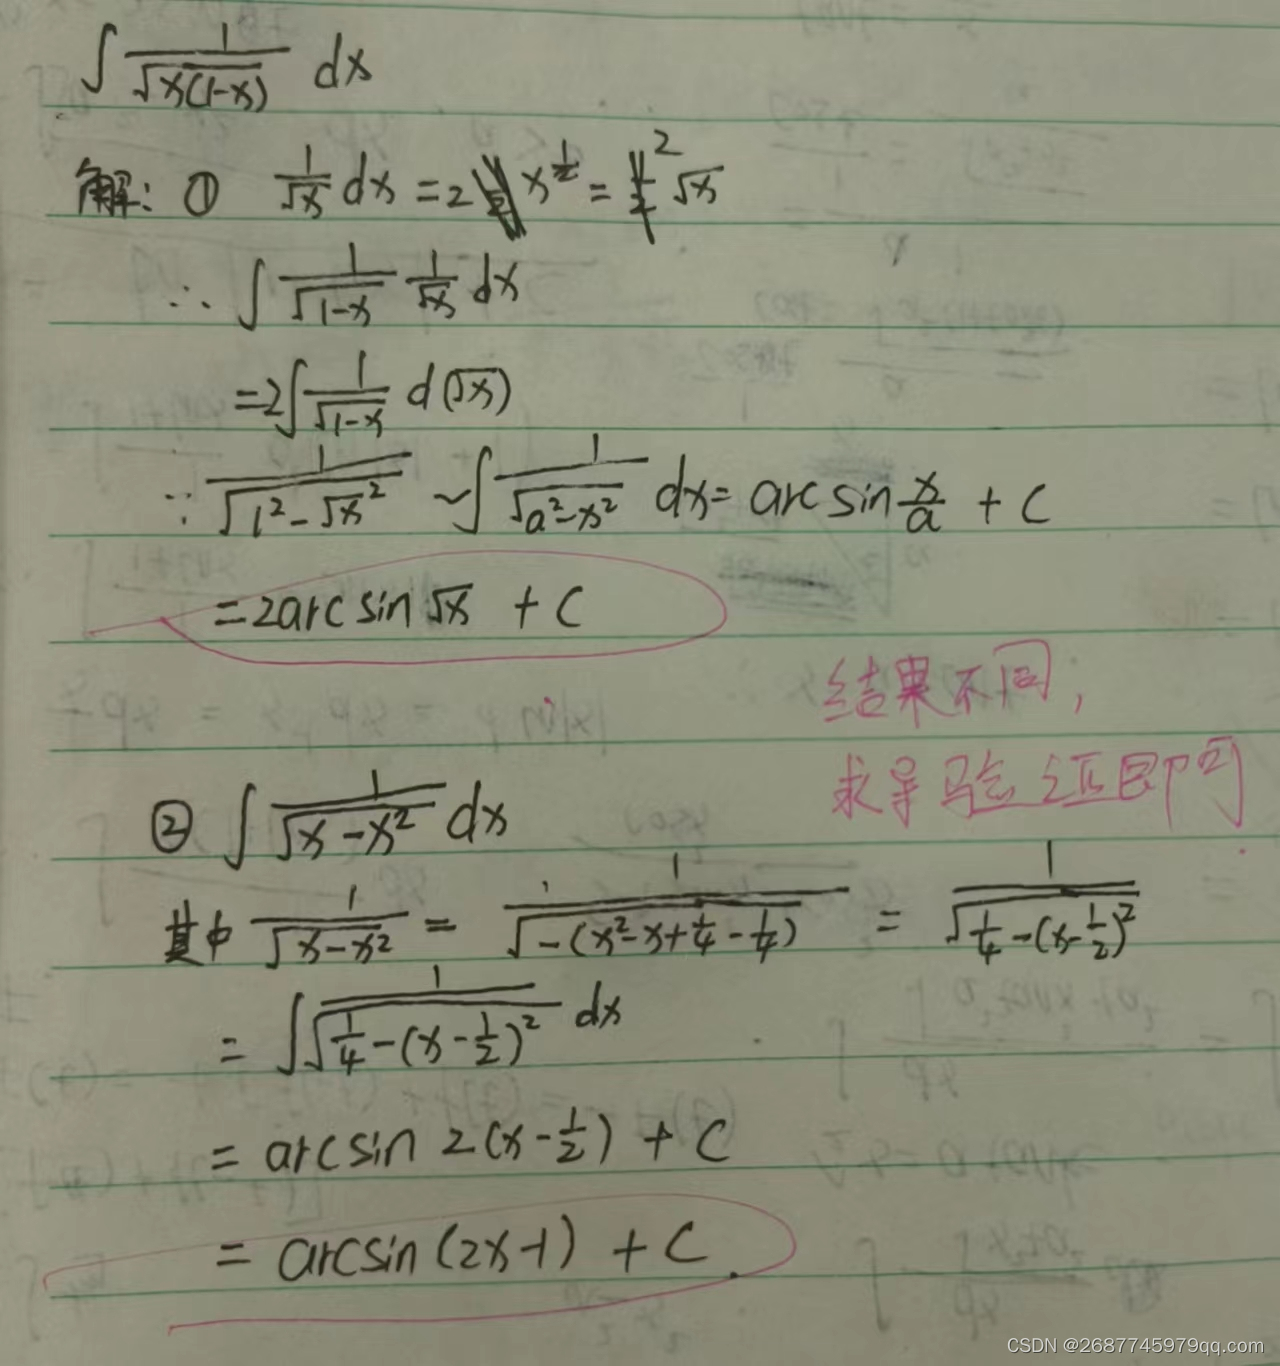 ∫ 1/√(x(1-x)) dx
解: ① 1/√x dx = 2 x^(1/2) = 2 √x
∴ ∫ 1/√(1-x) 1/√x dx
= 2∫ 1/√(1-x) d(√x)
∵ 1/√(1²-√x²) ~ ∫ 1/√(a²-x²) dx = arcsin x/a + C
= 2arcsin √x + C
结果不同,
求导验证即可
② ∫ 1/√(x-x²) dx
其中 1/√(x-x²) = 1/√(-(x²-x+1/4-1/4)) = 1/√(1/4-(x-1/2)²)
= ∫ 1/√(1/4-(x-1/2)²) dx
= arcsin 2(x-1/2) + C
= arcsin(2x-1) + C.
CSDN @2687745979qq.com